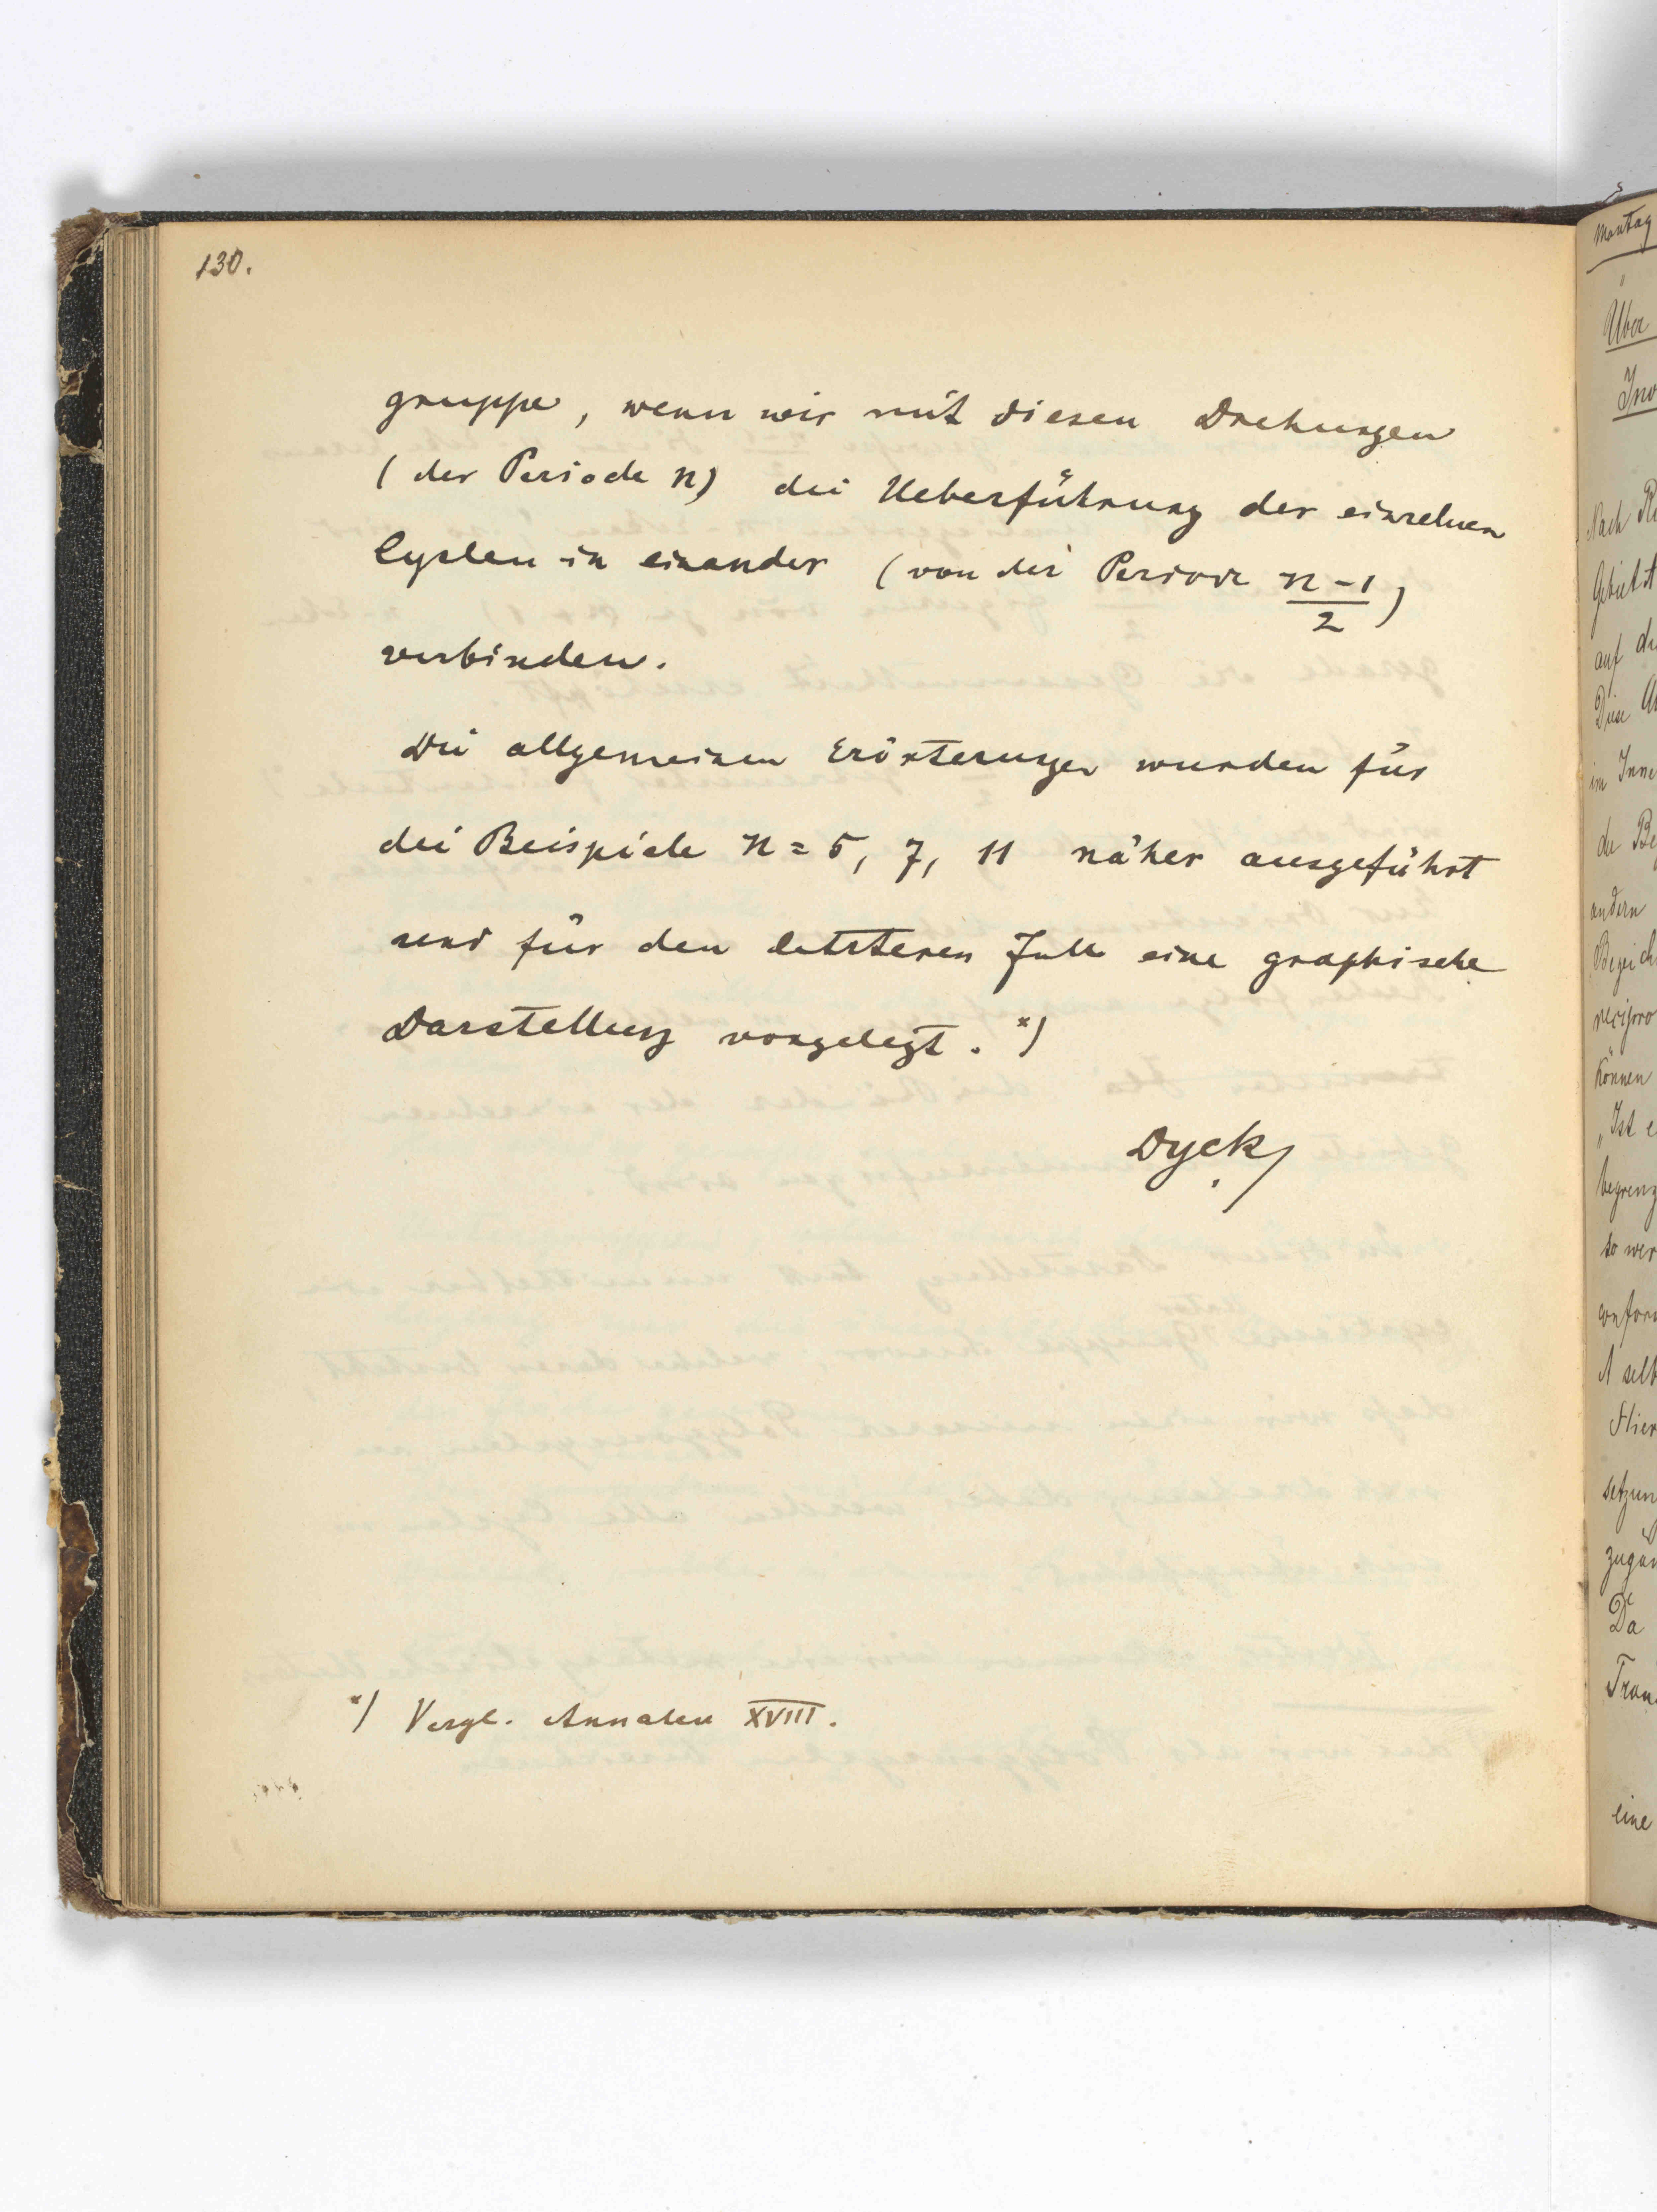 130.
gruppe, wenn wir mit diesen Drehungen
(der Periode n) die Ueberführung der einzelnen
Cyclen in einander (von der Periode n-1/2)
verbinden.
Die allgemeinen Erörterungen wurden für
die Beispiele n = 5, 7, 11 näher ausgeführt
und für den letzteren Fall eine graphische
Darstellung vorgelegt. *)
Dyck
*) Vergl. Annalen XVIII.
Montag
Über
Nach
auf
Diese
im
andern
können
"Ist
so
A
Da
eine